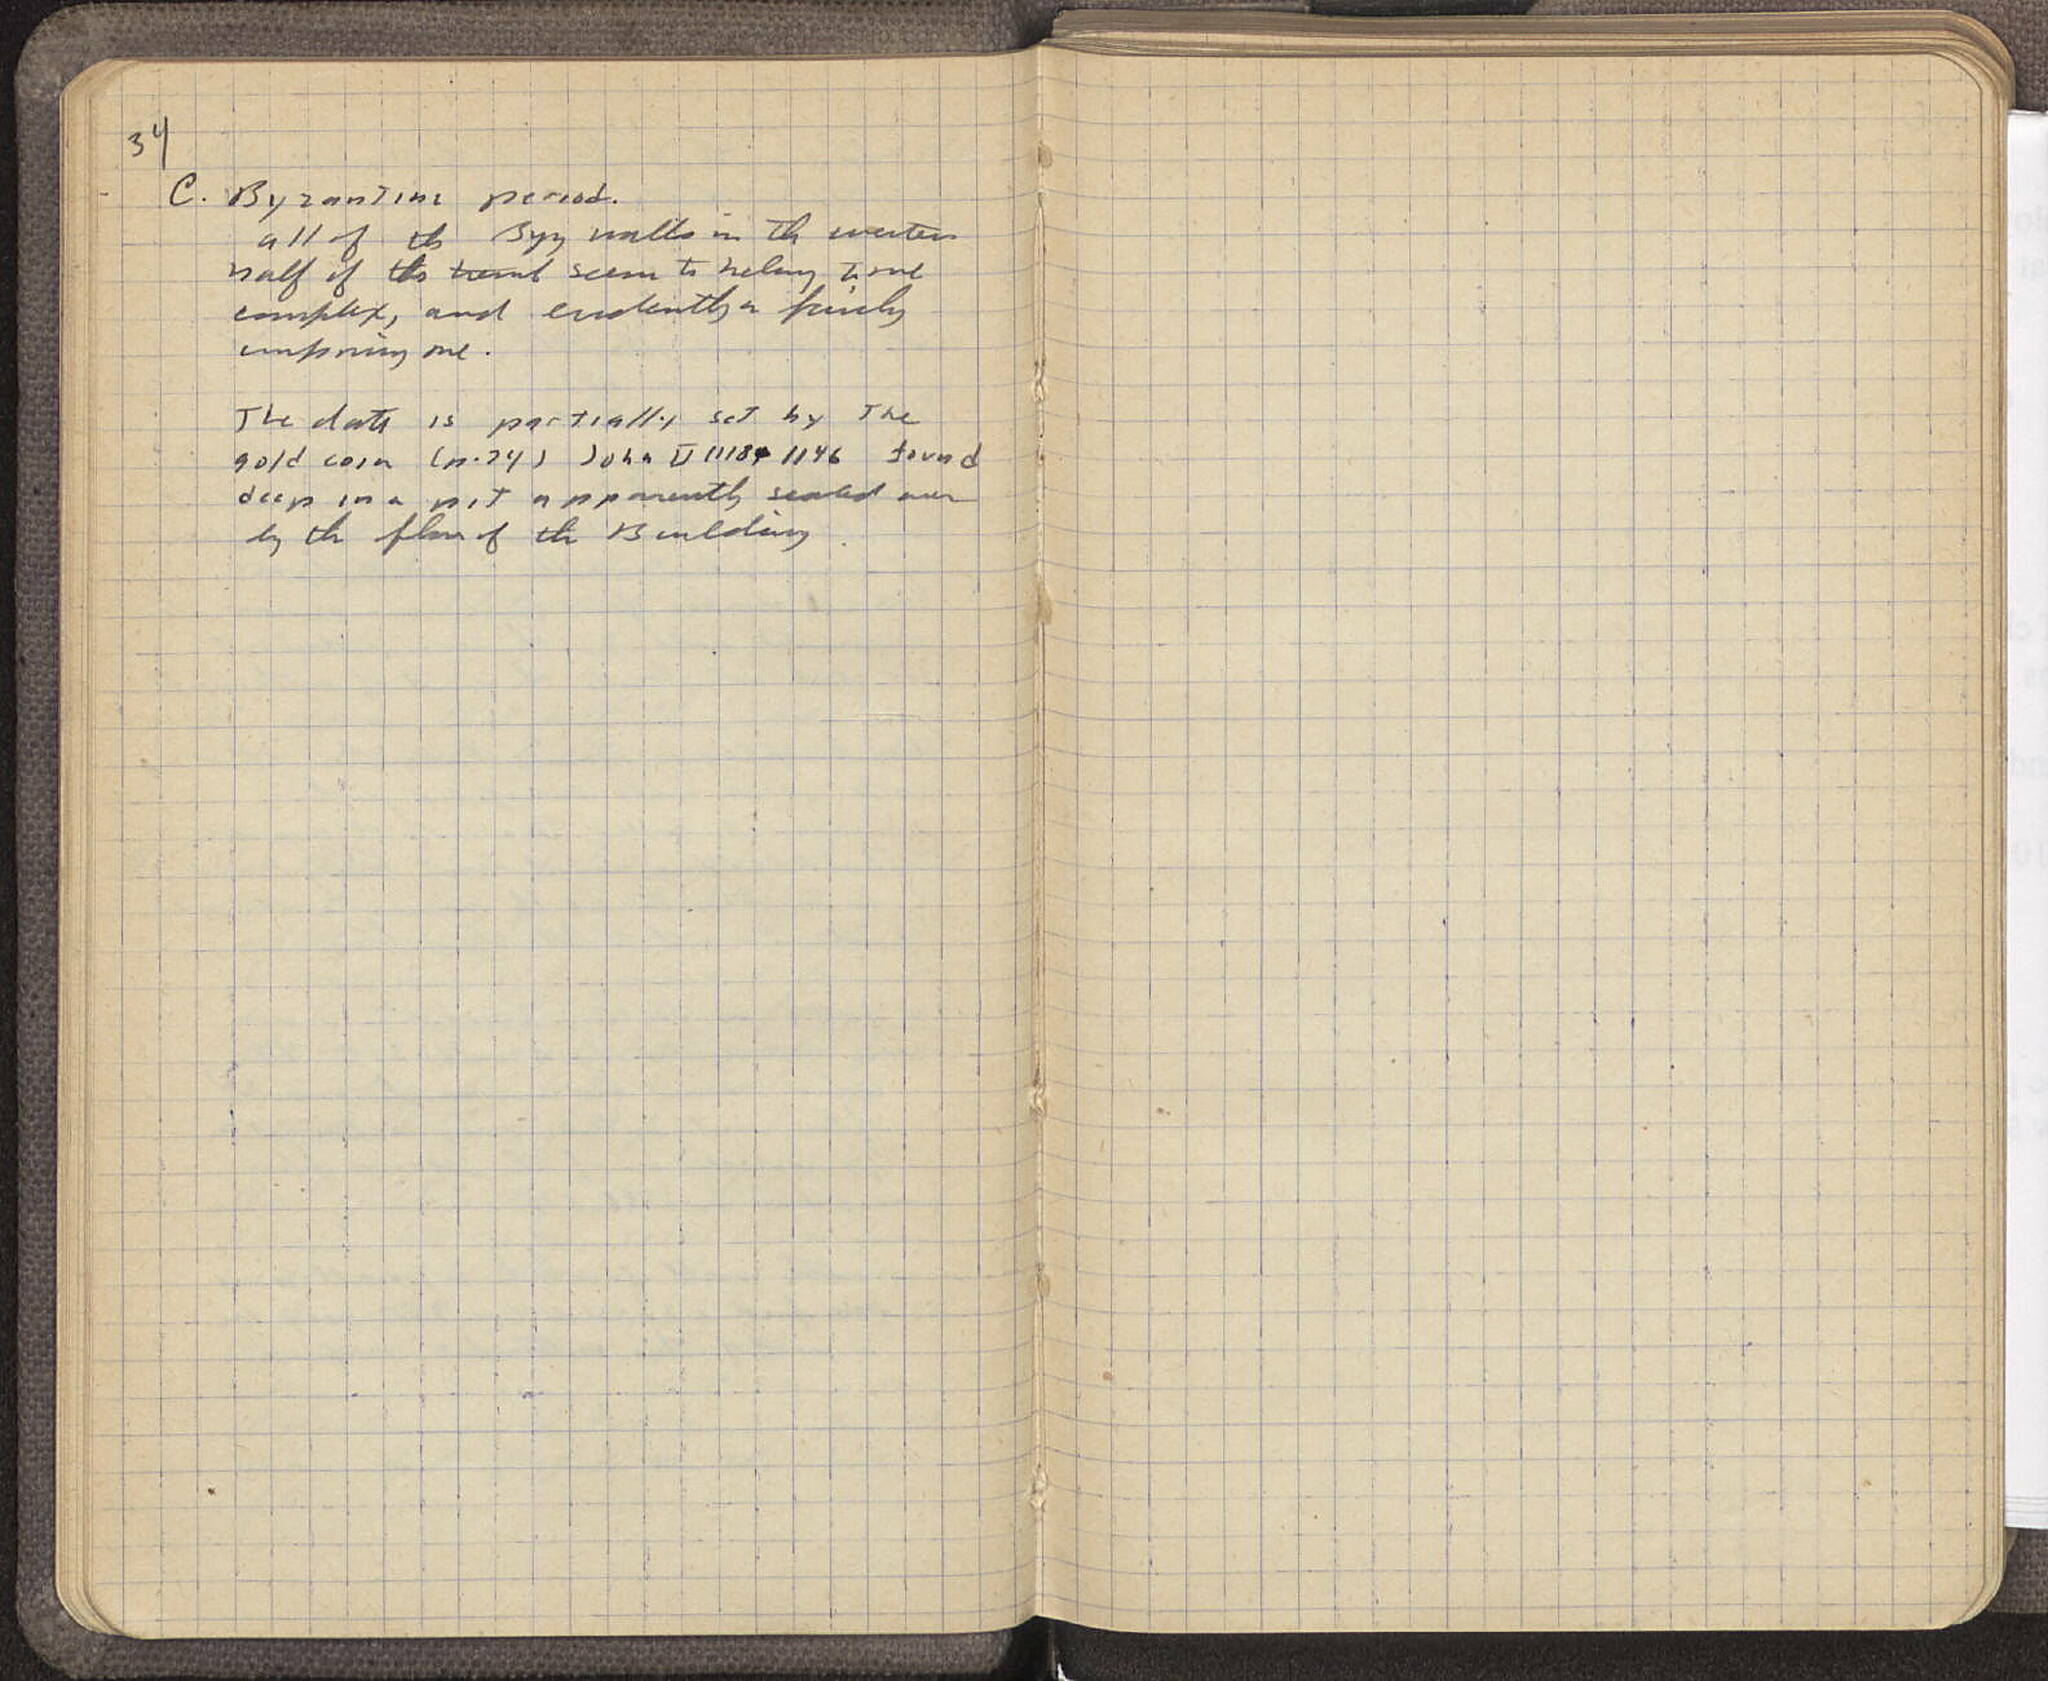 34
C. Byzantine period.
all of the Byz walls in the western
half of the trench seem to belong to one
complex, and evidently a fairly
imposing one.
The date is partially set by the
gold coin (p. 24) John II 1118-1146 found
deep in a pit apparently sealed over
by the floor of the Building.